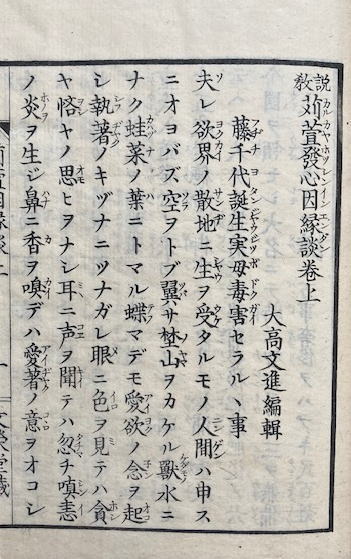 説教 苅萱發心因縁談卷上
大高文進編輯
藤千代誕生実母毒害セラルヽ事
夫レ欲界ノ散地ニ生ヲ受タルモノ人間ハ申ス
ニオヨバズ空ヲトブ翼サ埜山ヲカケル獸水ニ
ナク蛙菜ノ葉ニトマル蝶マデモ愛欲ノ念ヲ起
シ執著ノキヅナニツナガレ眼ニ色ヲ見テハ貪
ヤ悋ヤノ思ヒヲナシ耳ニ声ヲ聞テハ忽チ嗔恚
ノ炎ヲ生ジ鼻ニ香ヲ嗅デハ愛著ノ意ヲオコシ